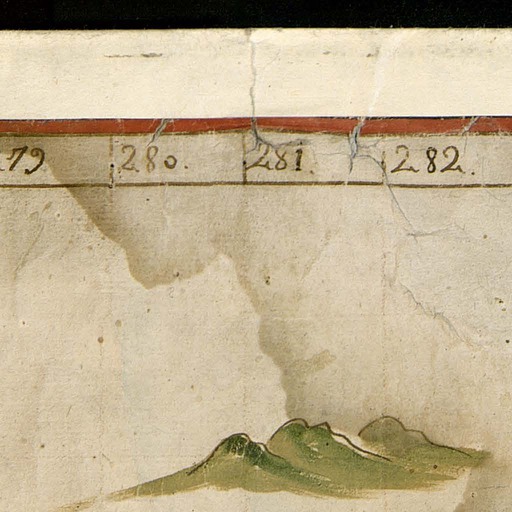 279 280. 281. 282.